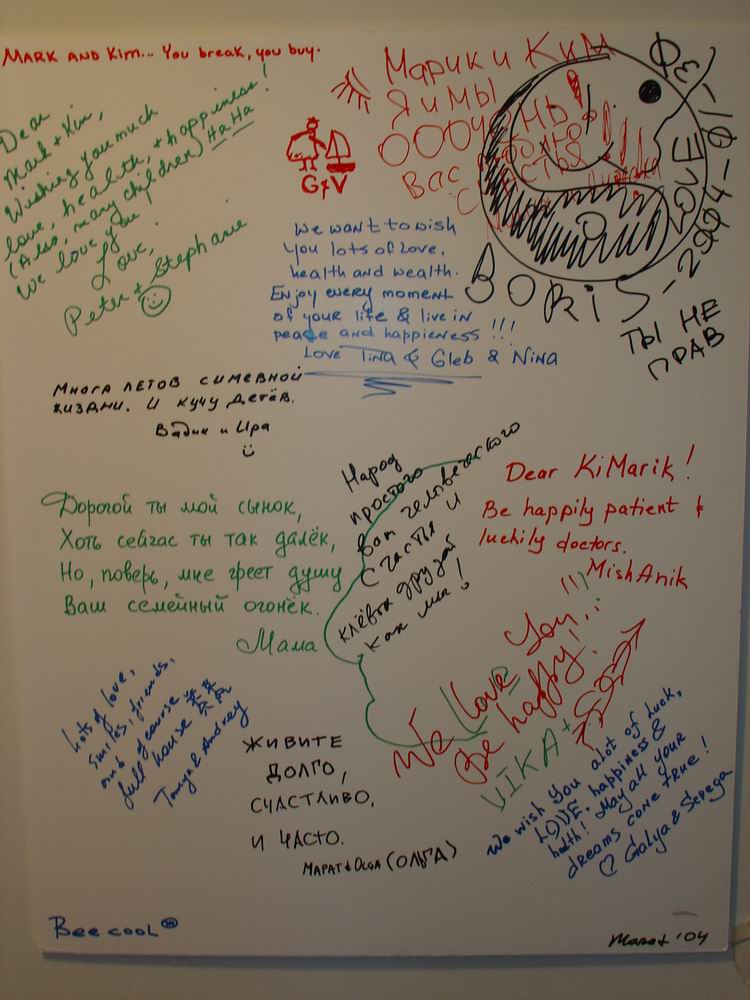 MARK AND Kim... You break, you buy.
Dear
Mark + Kim,
Wishing you much
love, health, + happiness!
(Also, many children) HaHa
We love you!
Love,
Peter + Stephanie
G+V
Марик и Ким
Я и МЫ
ОООЧЕНЬ
Вас
BORIS-2004-10-13
LOVE
ТЫ НЕ
ПРАВ
We want to wish
you lots of Love,
health and wealth.
Enjoy every moment
of your life & live in
peace and happieness !!!
Love Tina & Gleb & Nina
Многа летов симейной
жизднм. И кучу детёв.
Вадик и Ира
Народ
простого
вам человеческого
Счастья и
клёвых друзей
как мы!
Dear KiMarik!
Be happily patient &
luckily doctors.
MishAnik
Дорогой ты мой сынок,
Хоть сейчас ты так далёк,
Но, поверь, мне греет душу
Ваш семейный огонёк.
Мама
We Love You!!!
Be happy!
VIKA+
Lots of love,
smiles, friends,
and ofcourse
full house
Tanya & Andrey
ЖИВИТЕ
ДОЛГО,
СЧАСТЛИВО,
И ЧАСТО.
МАРАТ & OLGA (ОЛЬГА)
We wish You alot of Luck,
LOVE, happiness &
helth! May all your
dreams come true!
Galya & Serega
Bee cool
Marat '04